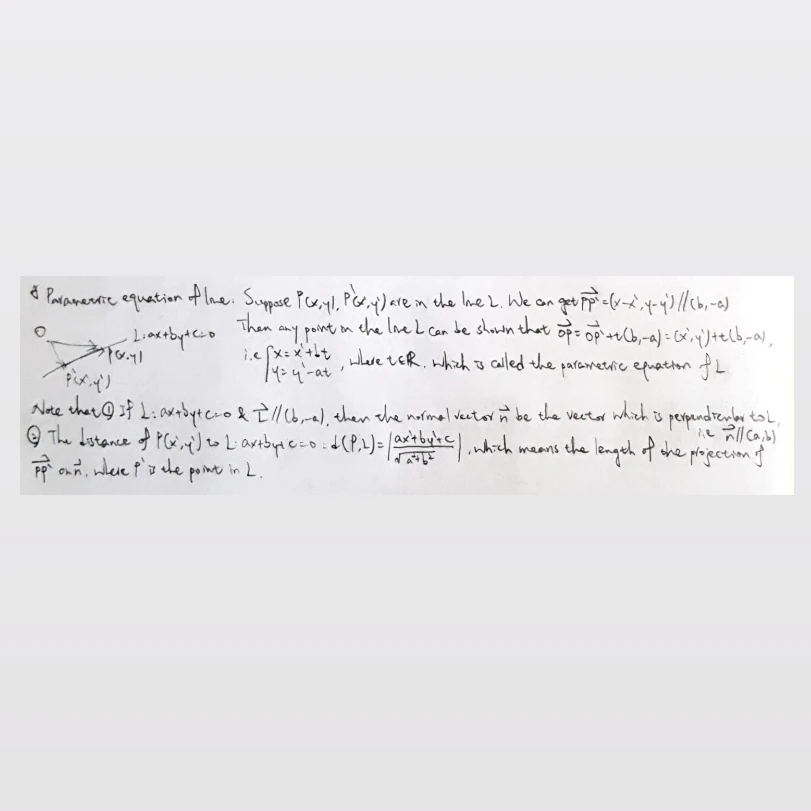 ∮ Parametric equation of line: Suppose P(x,y), P'(x',y') are in the line L. We can get \overrightarrow{PP'}=(x-x', y-y') // (b,-a)
O L: ax+by+c=0 Then any point in the line L can be shown that \overrightarrow{OP}=\overrightarrow{OP'}+t(b,-a)=(x',y')+t(b,-a),
P(x,y) i.e { x=x'+bt
P'(x',y') y=y'-at , where t∈R. which is called the parametric equation of L
Note that ① If L: ax+by+c=0 & \vec{L} // (b,-a), then the normal vector \vec{n} be the vector which is perpendicular to L,
i.e \vec{n} // (a,b)
② The distance of P(x',y') to L: ax+by+c=0: d(P,L)=|\frac{ax'+by'+c}{\sqrt{a^2+b^2}}|, which means the length of the projection of
\overrightarrow{PP'} on \vec{n}, where P' is the point in L.